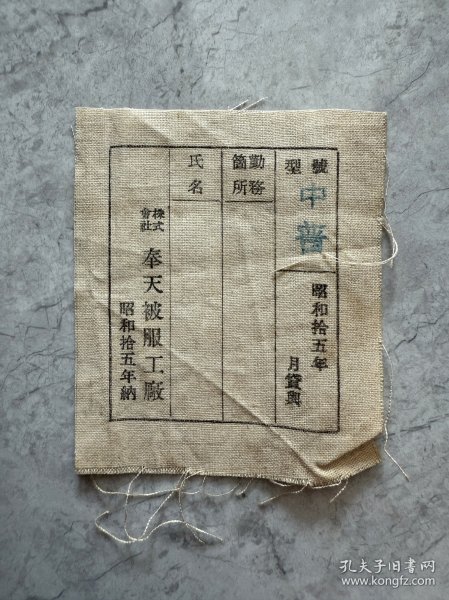 號型
中普
昭和拾五年 月貸與
勤務
箇所
氏名
株式
會社
奉天被服工廠
昭和拾五年納
孔夫子旧书网
www.kongfz.com